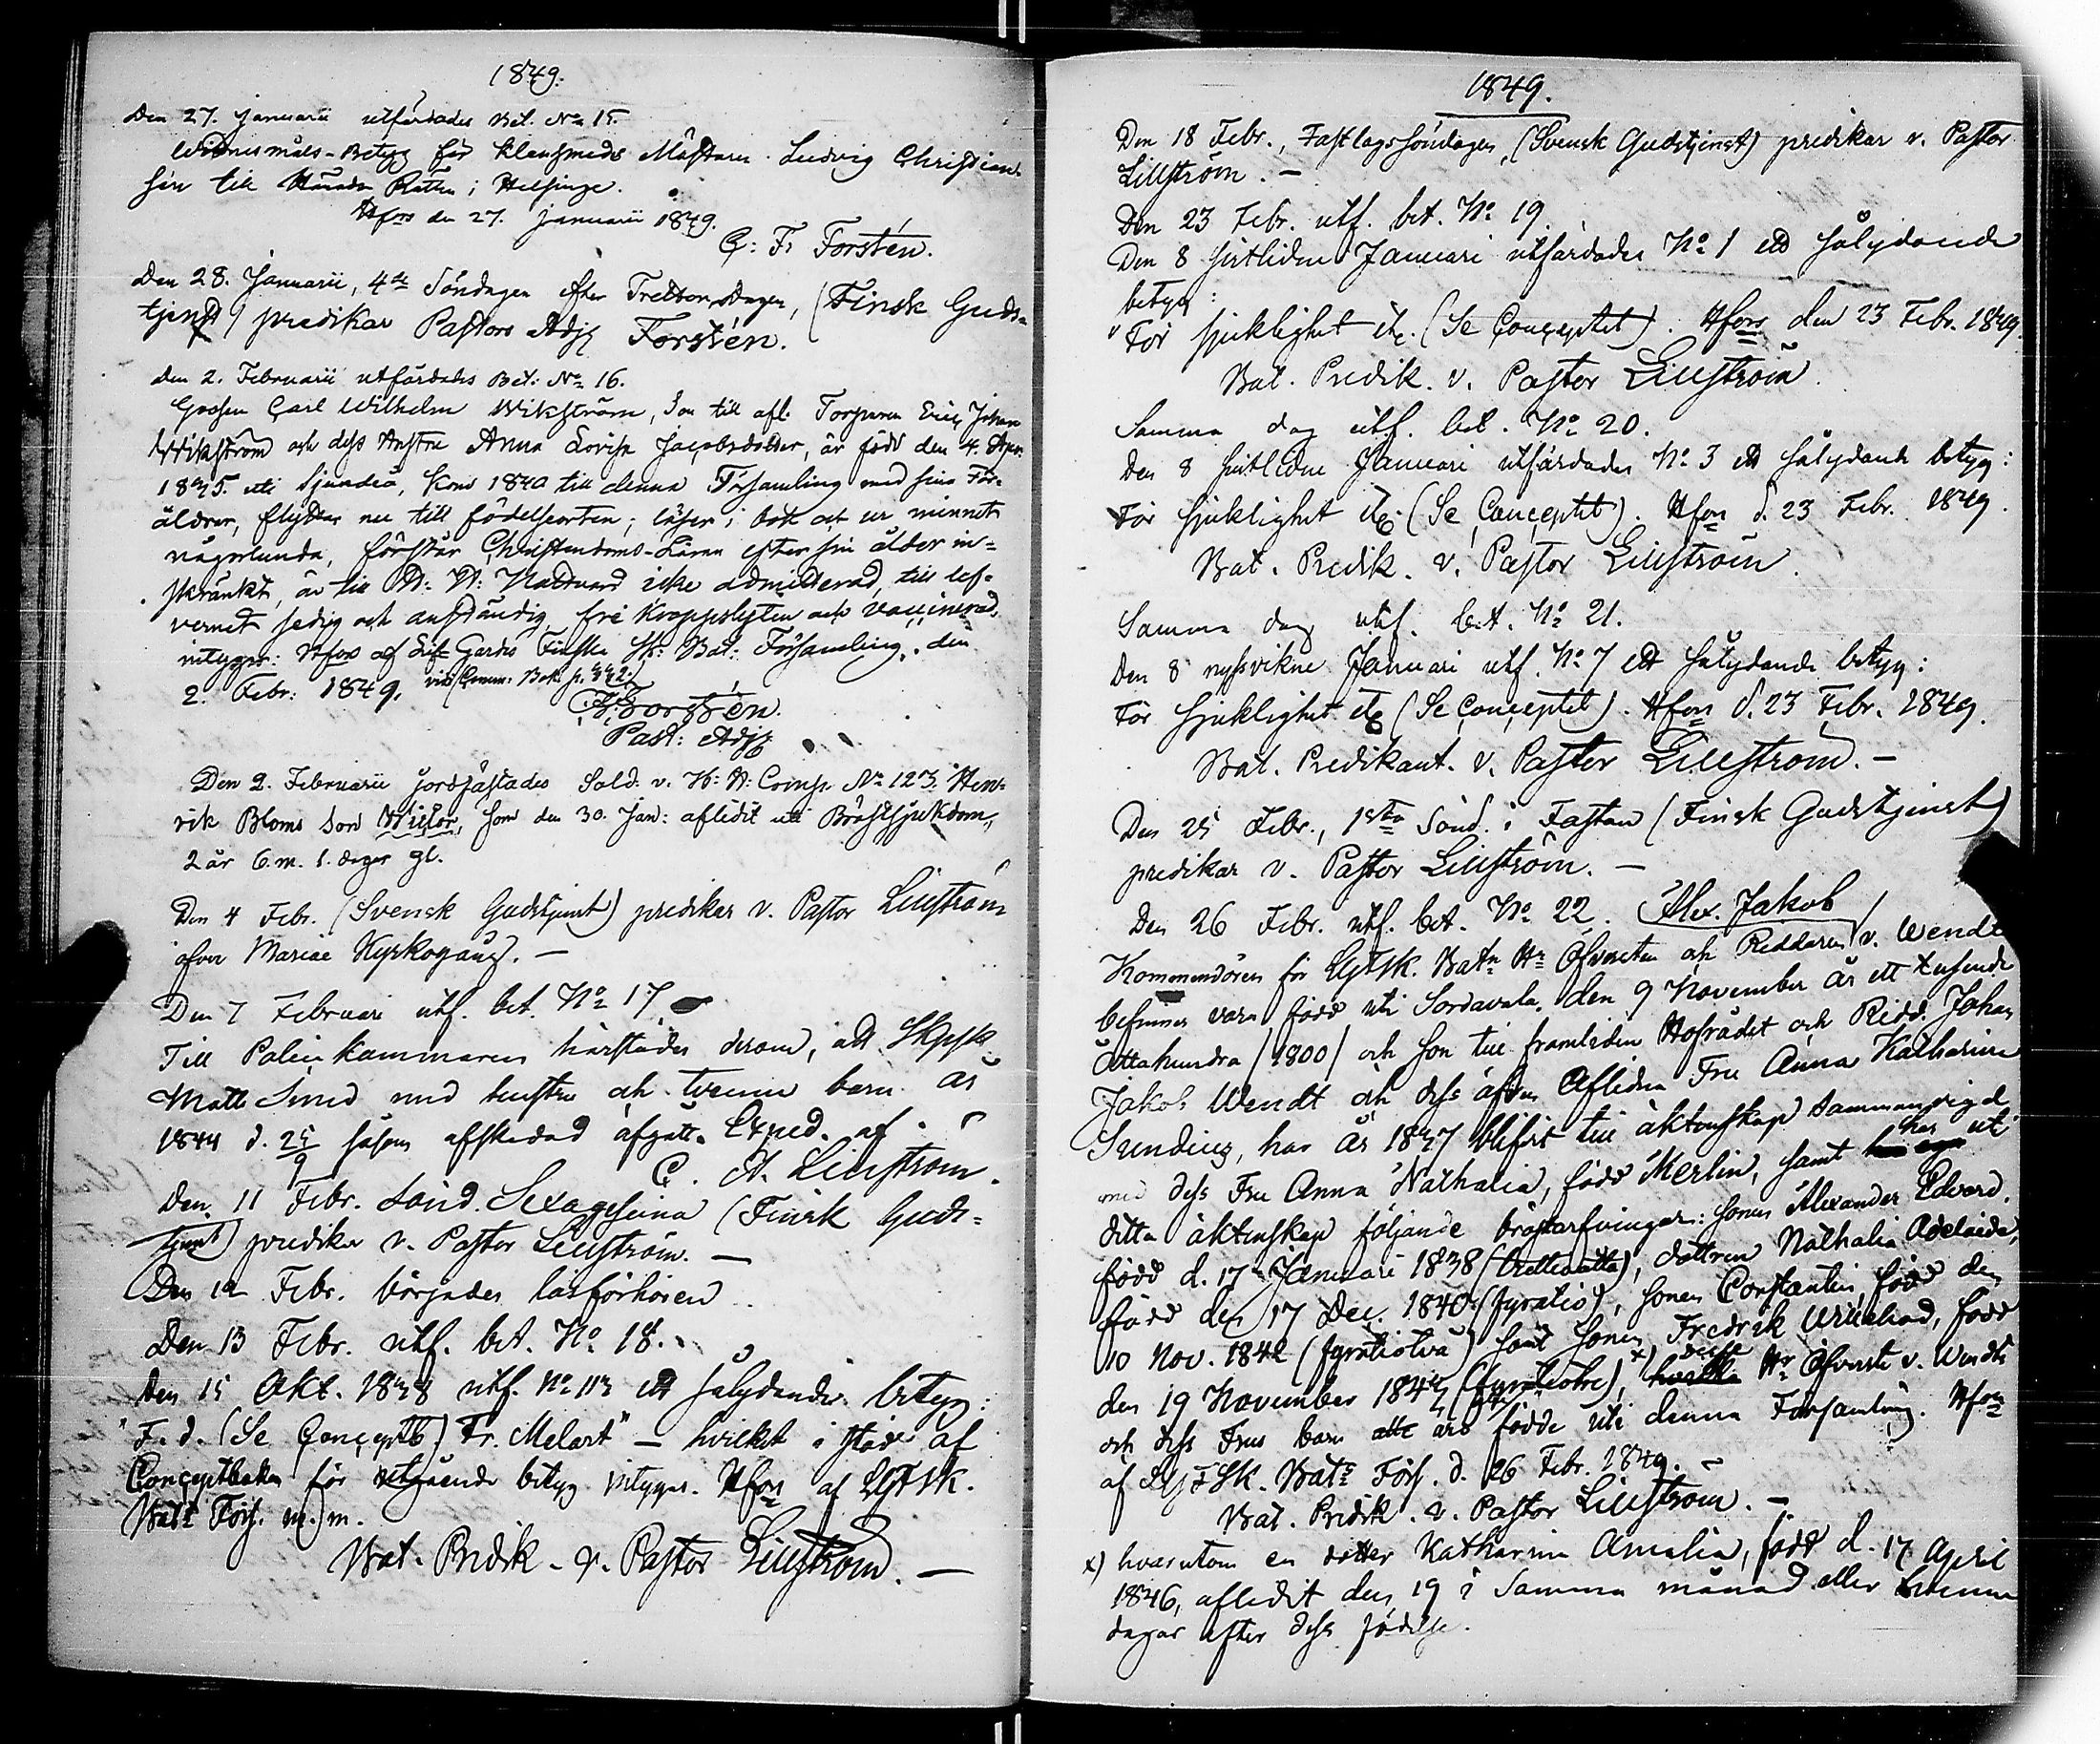 1849.
Den 27. Januarii utfärdades Bet. No 15.
Witnesmåls-Betyg för Klensmeds Mästaren Ludvig Christian
sin till Härads Rätten i Helsinge.
Hfors den 27. Januarii 1849.
C: F: Forstén.
Den 28. Januarii, 4de Söndagen efter Trettondagen, (Finsk Guds-
tjenst) predikar Pastors Adj: Forstén.
den 2. Februarii utfärdades Bet: No 16.
Gossen Carl Wilhelm Wikström, Son till afl. Torparen Eric Johan
Wikström och dess Hustru Anna Lovisa Jacobsdotter, är född den 4. Apr.
1835. uti Sjundeå, kom 1840 till denna Församling med sina För-
äldrar, flyttar nu till födelseorten; läser i bok och ur minnet
någorlunda, förstår Christendoms-Läran efter sin ålder in-
skränkt, är till H: H: Nattvard icke admitterad, till lef-
vernet sedig och anständig, fri Kroppslyten och vaccinerad,
intygar: Hfors af Lif Gardes Finska Sk: Bat: Församling, den
2. Febr: 1849. vid Comm: Bok p. 442.
Forstén.
Past: Adj:
Den 2. Februarii jordfästades Sold. v. H: H: Comp. No 123. Hen-
rik Bloms Son Victor, som den 30. Jan: aflidit uti Bröstsjukdom,
2 år 6. m. 1. dagar gl.
Den 4 Febr. (Svensk Gudstjenst) predikar v. Pastor Lillström
öfver Mariae Kyrkogång. —
Den 7 Februari utf. bet. No 17.
Till Policekammaren härstädes derom, att Skytte
Matts Smed med hustru och tvenne barn år
1844 d. 25/9 såsom afskedad afgått. Exped. af
C. A. Lillström.
Den 11 Febr. Sönd. Sexagesima (Finsk Guds-
tjenst) predikar v. Pastor Lillström. —
Den 12 Febr. började läsförhören.
Den 13 Febr. utf. bet. No 18.
Den 15 Okt. 1848 utf. No 113 ett sålydande betyg:
"F. d. (Se Conceptb) Fr. Melart" — hvilket i stöd af
Conceptboken för utgående betyg intygas. Hfors af LGFSk.
Batns Förs. m. m.
Bat. Predik. v. Pastor Lillström. —
1849.
Den 18 Febr., Fastlagssöndagen, (Svensk Gudstjenst) predikar v. Pastor
Lillström. —
Den 23 Febr. utf. bet. No 19.
Den 8 sistlidne Januari utfärdades No 1 ett sålydande
betyg:
"För sjuklighet etc. (Se Conceptet). Hfors den 23 Febr. 1849.
Bat. Predik. v. Pastor Lillström
Samma dag utf. bet. No 20.
Den 8 sistlidne Januari utfärdades No 3 ett sålydande betyg:
För sjuklighet etc. (Se Conceptet). Hfors d. 23 Febr. 1849.
Bat. Predik. v. Pastor Lillström
Samma dag utf. bet. No 21.
Den 8 nyssvikne Januari utf. No 7 ett sålydande betyg:
För sjuklighet etc (Se Conceptet). Hfors d. 23 Febr. 1849.
Bat. Predikant. v. Pastor Lillström. —
Den 25 Febr., 1sta Sönd. i Fastan (Finsk Gudstjenst)
predikar v. Pastor Lillström. —
Den 26 Febr. utf. bet. No 22. Alex. Jakob
Kommendören för LGFSk. Batn Hr Öfversten och Riddaren v. Wendt
befinnes vara född uti Sordavala den 9 November år ett tusende
Åttahundra (1800) och son till framlidne Hofrådet och Ridd. Johan
Jakob Wendt och dess äfven Aflidna Fru Anna Katharina
Sundius, har år 1837 blifvit till äktenskap sammanvigd
med dess Fru Anna Nathalia, född Merlin, samt har uti
detta äktenskap följande bröstarfvingar: sonen Alexander Edvard,
född d. 17 Januari 1838 (trettiåtta), dottren Nathalia Adelaide,
född den 17 Dec. 1840 (fyratio), sonen Constantin, född den
10 Nov. 1842 (fyratiotvå) samt sonen Fredrik Wilhelm, född
den 19 November 1843 (fyratiotre), x) hvilka desse Hr Öfverste v. Wendts
och dess Frus barn alla äro födde uti denna Församling. Hfors
af LGFSk. Batns Förs. d. 26 Febr. 1849. —
Bat. Predik. v. Pastor Lillström. —
x) hvarutom en dotter Katharina Amalia, född d. 17 April
1846, aflidit den 19 i samma månad eller tvenne
dagar efter dess födelse.